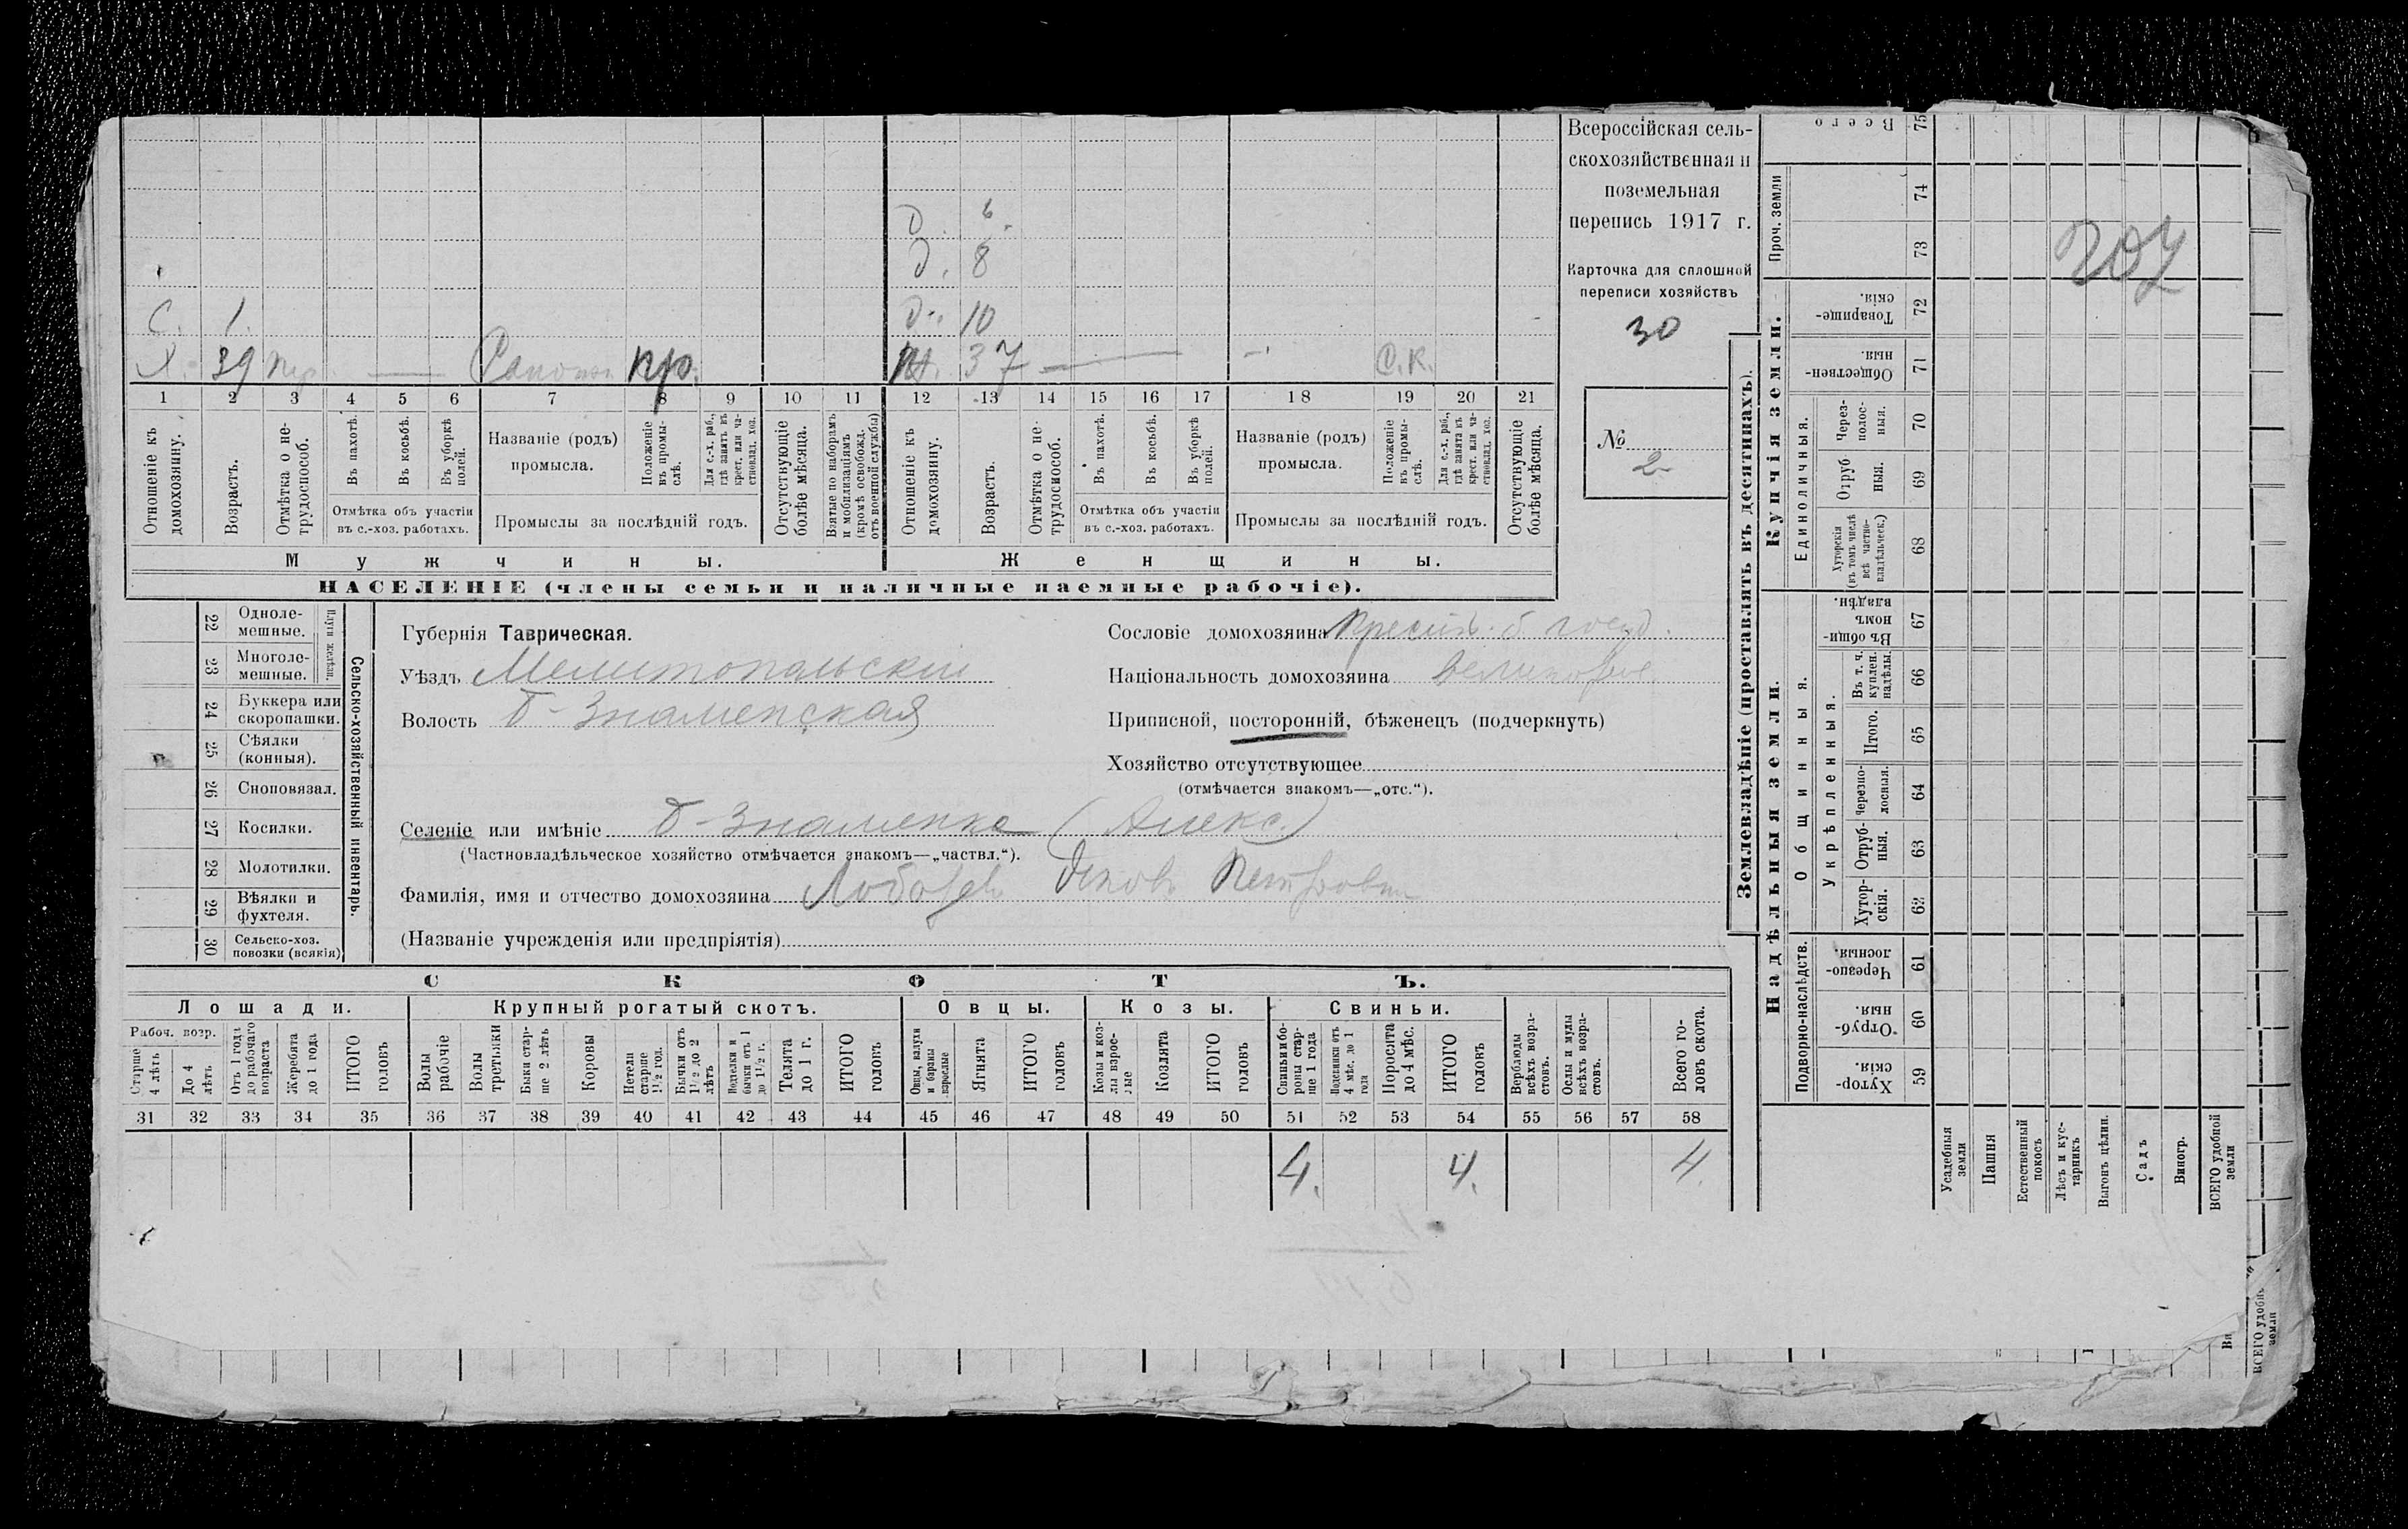 Всероссійская сель-
скохозяйственная и
поземельная
перепись 1917 г.
Карточка для сплошной
переписи хозяйствъ
30
№
2
207
Д. 6.
Д. 8
С. 1.
Д. 10
Х. 39 пр.
Ж. 37 — С.К.
1 2 3 4 5 6 7 8 9 10 11 12 13 14 15 16 17 18 19 20 21
Отношеніе къ домохозяину.
Возрастъ.
Отмѣтка о не-трудоспособ.
Въ пахотѣ.
Въ косьбѣ.
Въ уборкѣ полей.
Отмѣтка объ участіи въ с.-хоз. работахъ.
Названіе (родъ) промысла.
Положеніе въ промы-слѣ.
Для с.-х. раб., гдѣ занятъ въ крест. или ча-стновлад. хоз.
Промыслы за послѣдній годъ.
Отсутствующіе болѣе мѣсяца.
Взятые по наборамъ и мобилизаціямъ (кромѣ освобожд. отъ военной службы)
Отношеніе къ домохозяину.
Возрастъ.
Отмѣтка о не-трудоспособ.
Въ пахотѣ.
Въ косьбѣ.
Въ уборкѣ полей.
Отмѣтка объ участіи въ с.-хоз. работахъ.
Названіе (родъ) промысла.
Положеніе въ промы-слѣ.
Для с.-х. раб., гдѣ занята въ крест. или ча-стновлад. хоз.
Промыслы за послѣдній годъ.
Отсутствующіе болѣе мѣсяца.
Мужчины.
Женщины.
НАСЕЛЕНІЕ (члены семьи и наличные наемные рабочіе).
22 Одноле-мешные.
23 Многоле-мешные.
Плуги желѣзн.
24 Буккера или скоропашки.
25 Сѣялки (конныя).
26 Сноповязал.
27 Косилки.
28 Молотилки.
29 Вѣялки и фухтеля.
30 Сельско-хоз. повозки (всякія)
Сельско-хозяйственный инвентарь.
Губернія Таврическая.
Уѣздъ Мелитопольскій
Волость Б-Знаменская
Сословіе домохозяина Крестьян. б. госуд.
Національность домохозяина великорос.
Приписной, посторонній, бѣженецъ (подчеркнуть)
Хозяйство отсутствующее
(отмѣчается знакомъ—„отс.“).
Селеніе или имѣніе Б-Знаменка (Алекс.)
(Частновладѣльческое хозяйство отмѣчается знакомъ—„частвл.“).
Фамилія, имя и отчество домохозяина Яковъ Петровичъ
(Названіе учрежденія или предпріятія)
СКОТЪ.
Лошади.
Крупный рогатый скотъ.
Овцы.
Козы.
Свиньи.
Рабоч. возр.
Старше 4 лѣтъ
До 4 лѣтъ
Отъ 1 года до рабочаго возраста
Жеребята до 1 года
ИТОГО головъ
Волы рабочіе
Волы третьяки
Быки стар-ше 2 лѣтъ
Коровы
Нетели старше 1½ год.
Бычки отъ 1½ до 2 лѣтъ
Подтелки и бычки отъ 1 до 1½ г.
Телята до 1 г.
ИТОГО головъ
Овцы, валухи и бараны взрослые
Ягнята
ИТОГО головъ
Козы и коз-лы взрос-лые
Козлята
ИТОГО головъ
Свиньи и бо-ровы стар-ше 1 года
Подсвинки отъ 4 мѣс. до 1 года
Поросята до 4 мѣс.
ИТОГО головъ
Верблюды всѣхъ возра-стовъ.
Ослы и мулы всѣхъ возра-стовъ.
Всего го-ловъ скота.
31 32 33 34 35 36 37 38 39 40 41 42 43 44 45 46 47 48 49 50 51 52 53 54 55 56 57 58
4. 4. 4.
Землевладѣніе (проставлять въ десятинахъ).
Купчія земли.
Надѣльныя земли.
Всего 75
Проч. земли 74 73
Товарище-скія. 72
Обществен-ныя. 71
Единоличныя.
Через-полос-ныя. 70
Отруб-ныя. 69
Хуторскія (въ томъ числѣ всѣ частно-владѣльческ.) 68
Въ общи-номъ владѣн. 67
Общинныя.
Укрѣпленныя.
Въ т. ч. куплен. надѣлы. 66
Итого. 65
Черезпо-лосныя. 64
Отруб-ныя. 63
Хутор-скія. 62
Подворно-наслѣдств.
Черезпо-лосныя. 61
Отруб-ныя. 60
Хутор-скія. 59
Усадебныя земли
Пашня
Естественный покосъ
Лѣсъ и кус-тарникъ
Выгонъ цѣлин.
Садъ
Виногр.
ВСЕГО удобной земли
ВСЕГО удобн земли